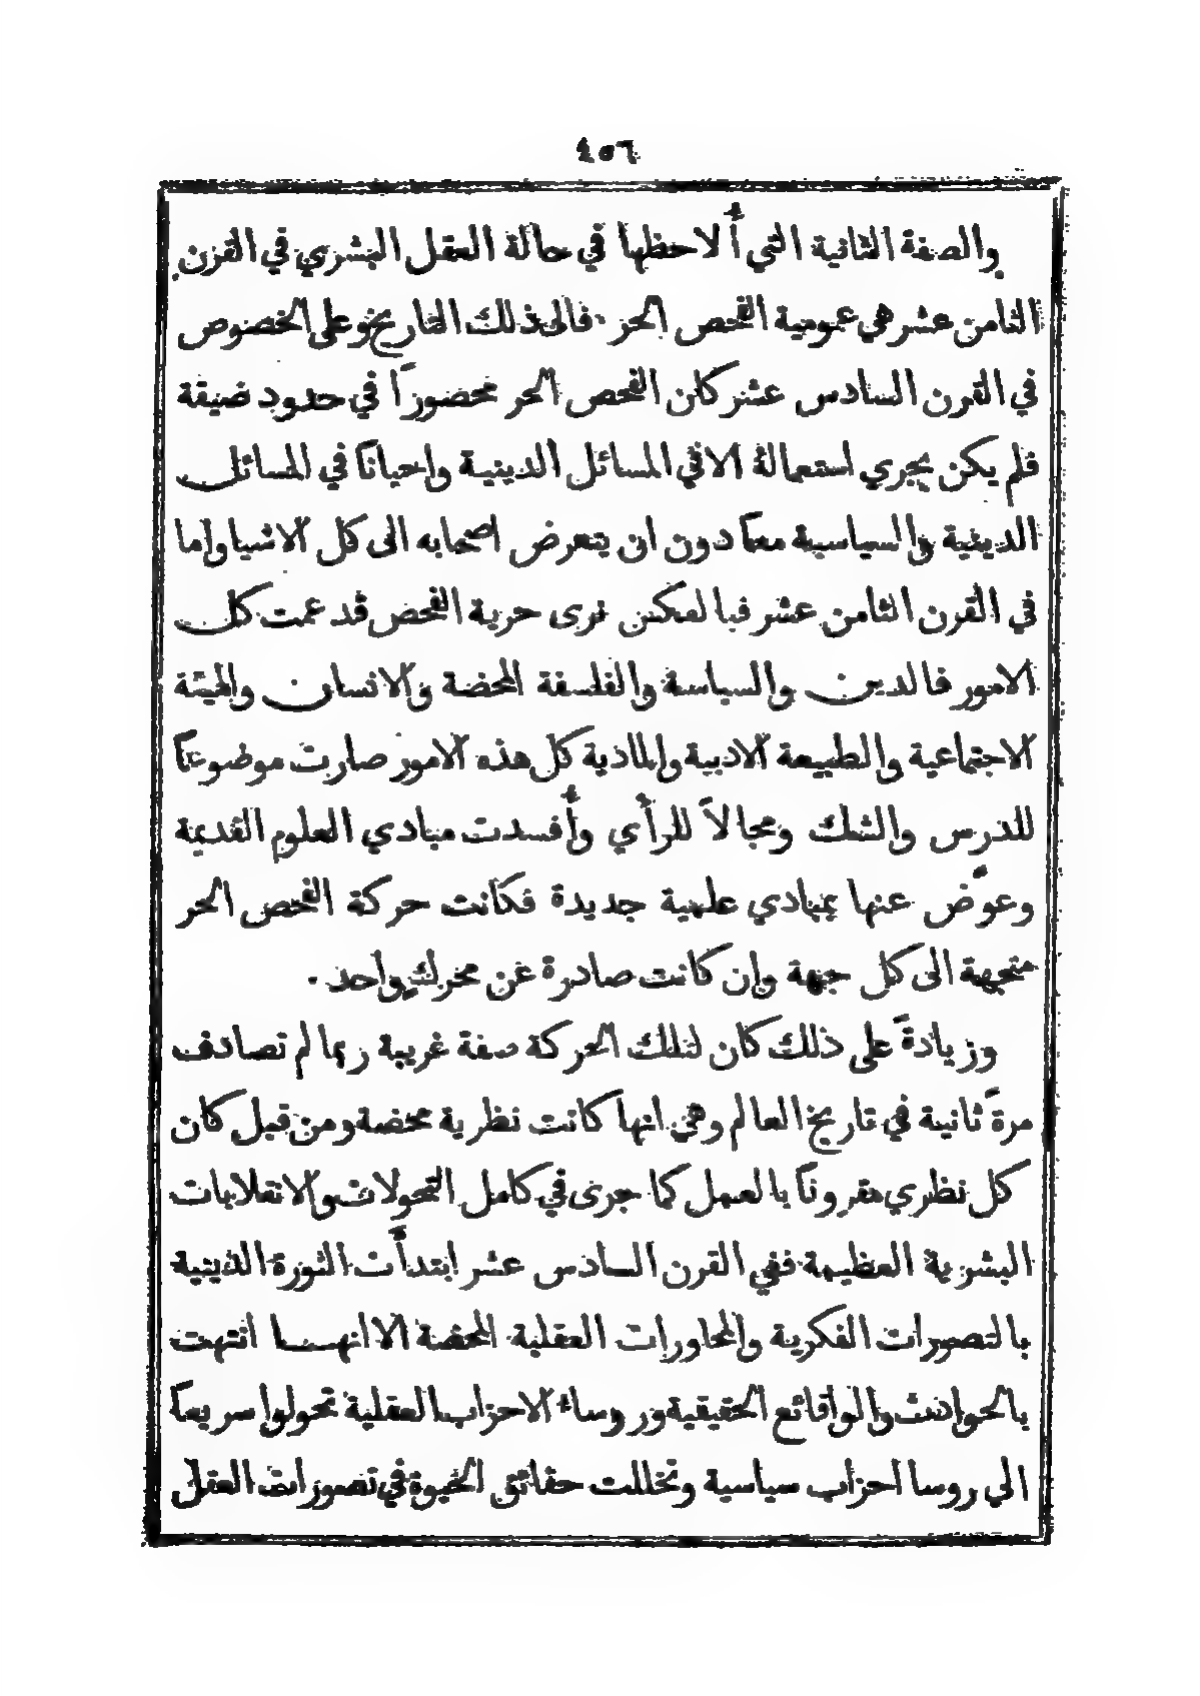 ٤٥٦
والصفة الثانية التي أُلاحظها في حالة العقل البشري في القرن
الثامن عشر هي عمومية الفحص الحر. فالى ذلك التاريخ وعلى الخصوص
في القرن السادس عشر كان الفحص الحر محضوراً في حدود ضيقة
فلم يكن يجري استعمالهُ الا في المسائل الدينية واحياناً في المسائل
الدينية والسياسية معاً دون ان يتعرض اصحابه الى كل الاشيا واما
في القرن الثامن عشر فبالعكس نرى حرية الفحص قد عمت كل
الامور فالدين والسياسة والفلسفة المحضة والانسان والهيئة
الاجتماعية والطبيعة الادبية والمادية كل هذه الامور صارت موضوعاً
للدرس والشك ومجالاً للرأي وأُفسدت مبادي العلوم القديمة
وعوّض عنها بمبادي علمية جديدة فكانت حركة الفحص الحر
متجهة الى كل جهة وان كانت صادرة عن محرك واحد.
وزيادةً على ذلك كان لتلك الحركة صفة غريبة ربما لم تصادف
مرةً ثانية في تاريخ العالم وهي انها كانت نظرية محضة ومن قبل كان
كل نظري مقروناً بالعمل كما جرى في كامل التحولات والانقلابات
البشرية العظيمة ففي القرن السادس عشر ابتدأَت الثورة الدينية
بالتصورات الفكرية والمحاورات العقلية المحضة الا انها انتهت
بالحوادث والوقائع الحقيقية وروساء الاحزاب العقلية تحولوا سريعاً
الى روسا احزاب سياسية وتخللت حقائق الحيوة في تصورات العقل